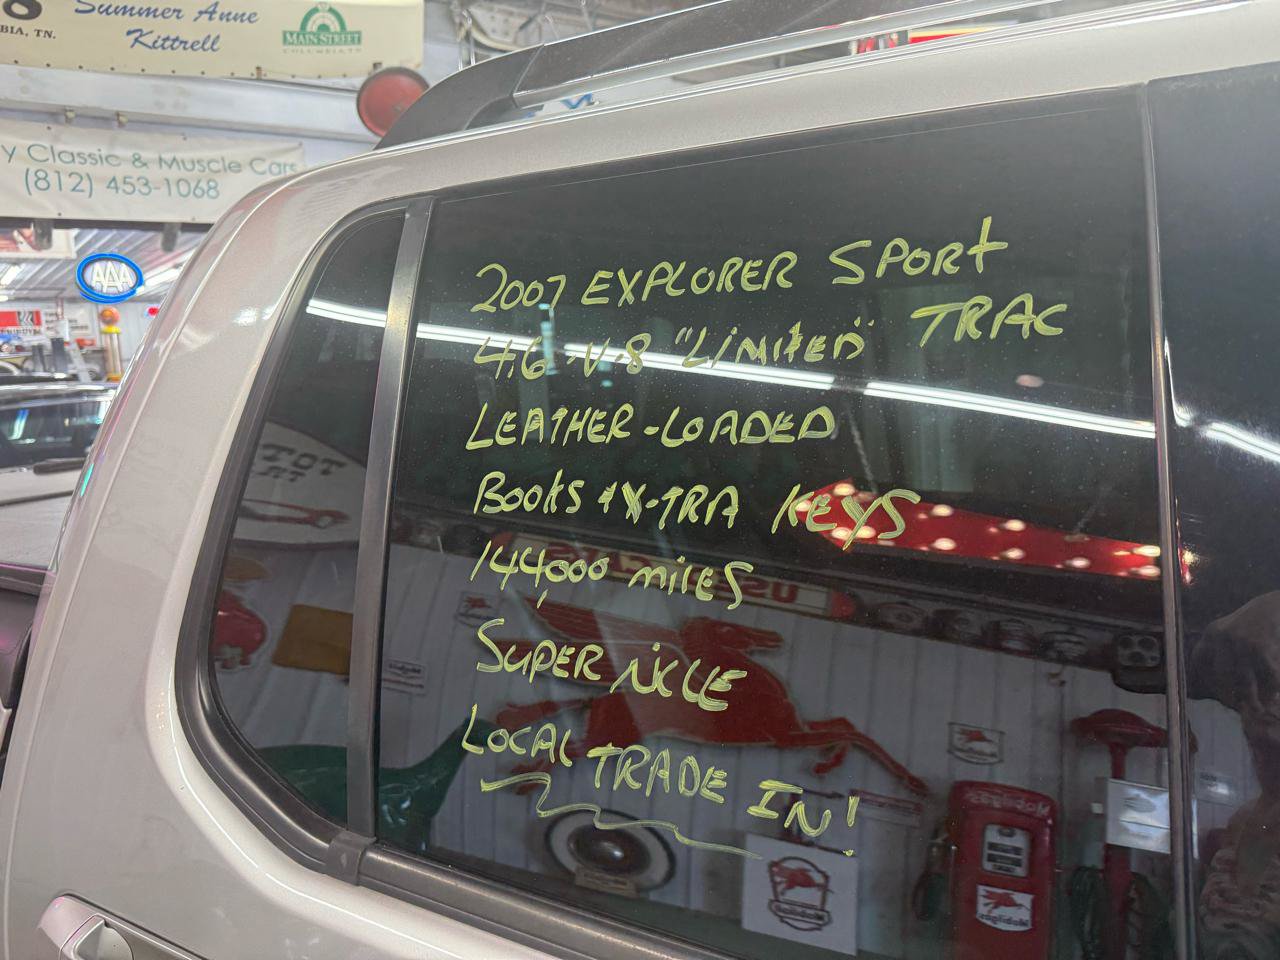 8
BIA, TN.
Summer Anne
Kittrell
MAIN STREET
COLUMBIA TN
y Classic & Muscle Cars
(812) 453-1068
AAA
2007 EXPLORER SPORT
TRAC
4.6 V.8 "LIMITED"
LEATHER-LOADED
BOOKS + X-TRA KEYS
144,000 MILES
SUPER NICE
LOCAL TRADE IN!
Mobilgas
Mobilgas
Mobilgas